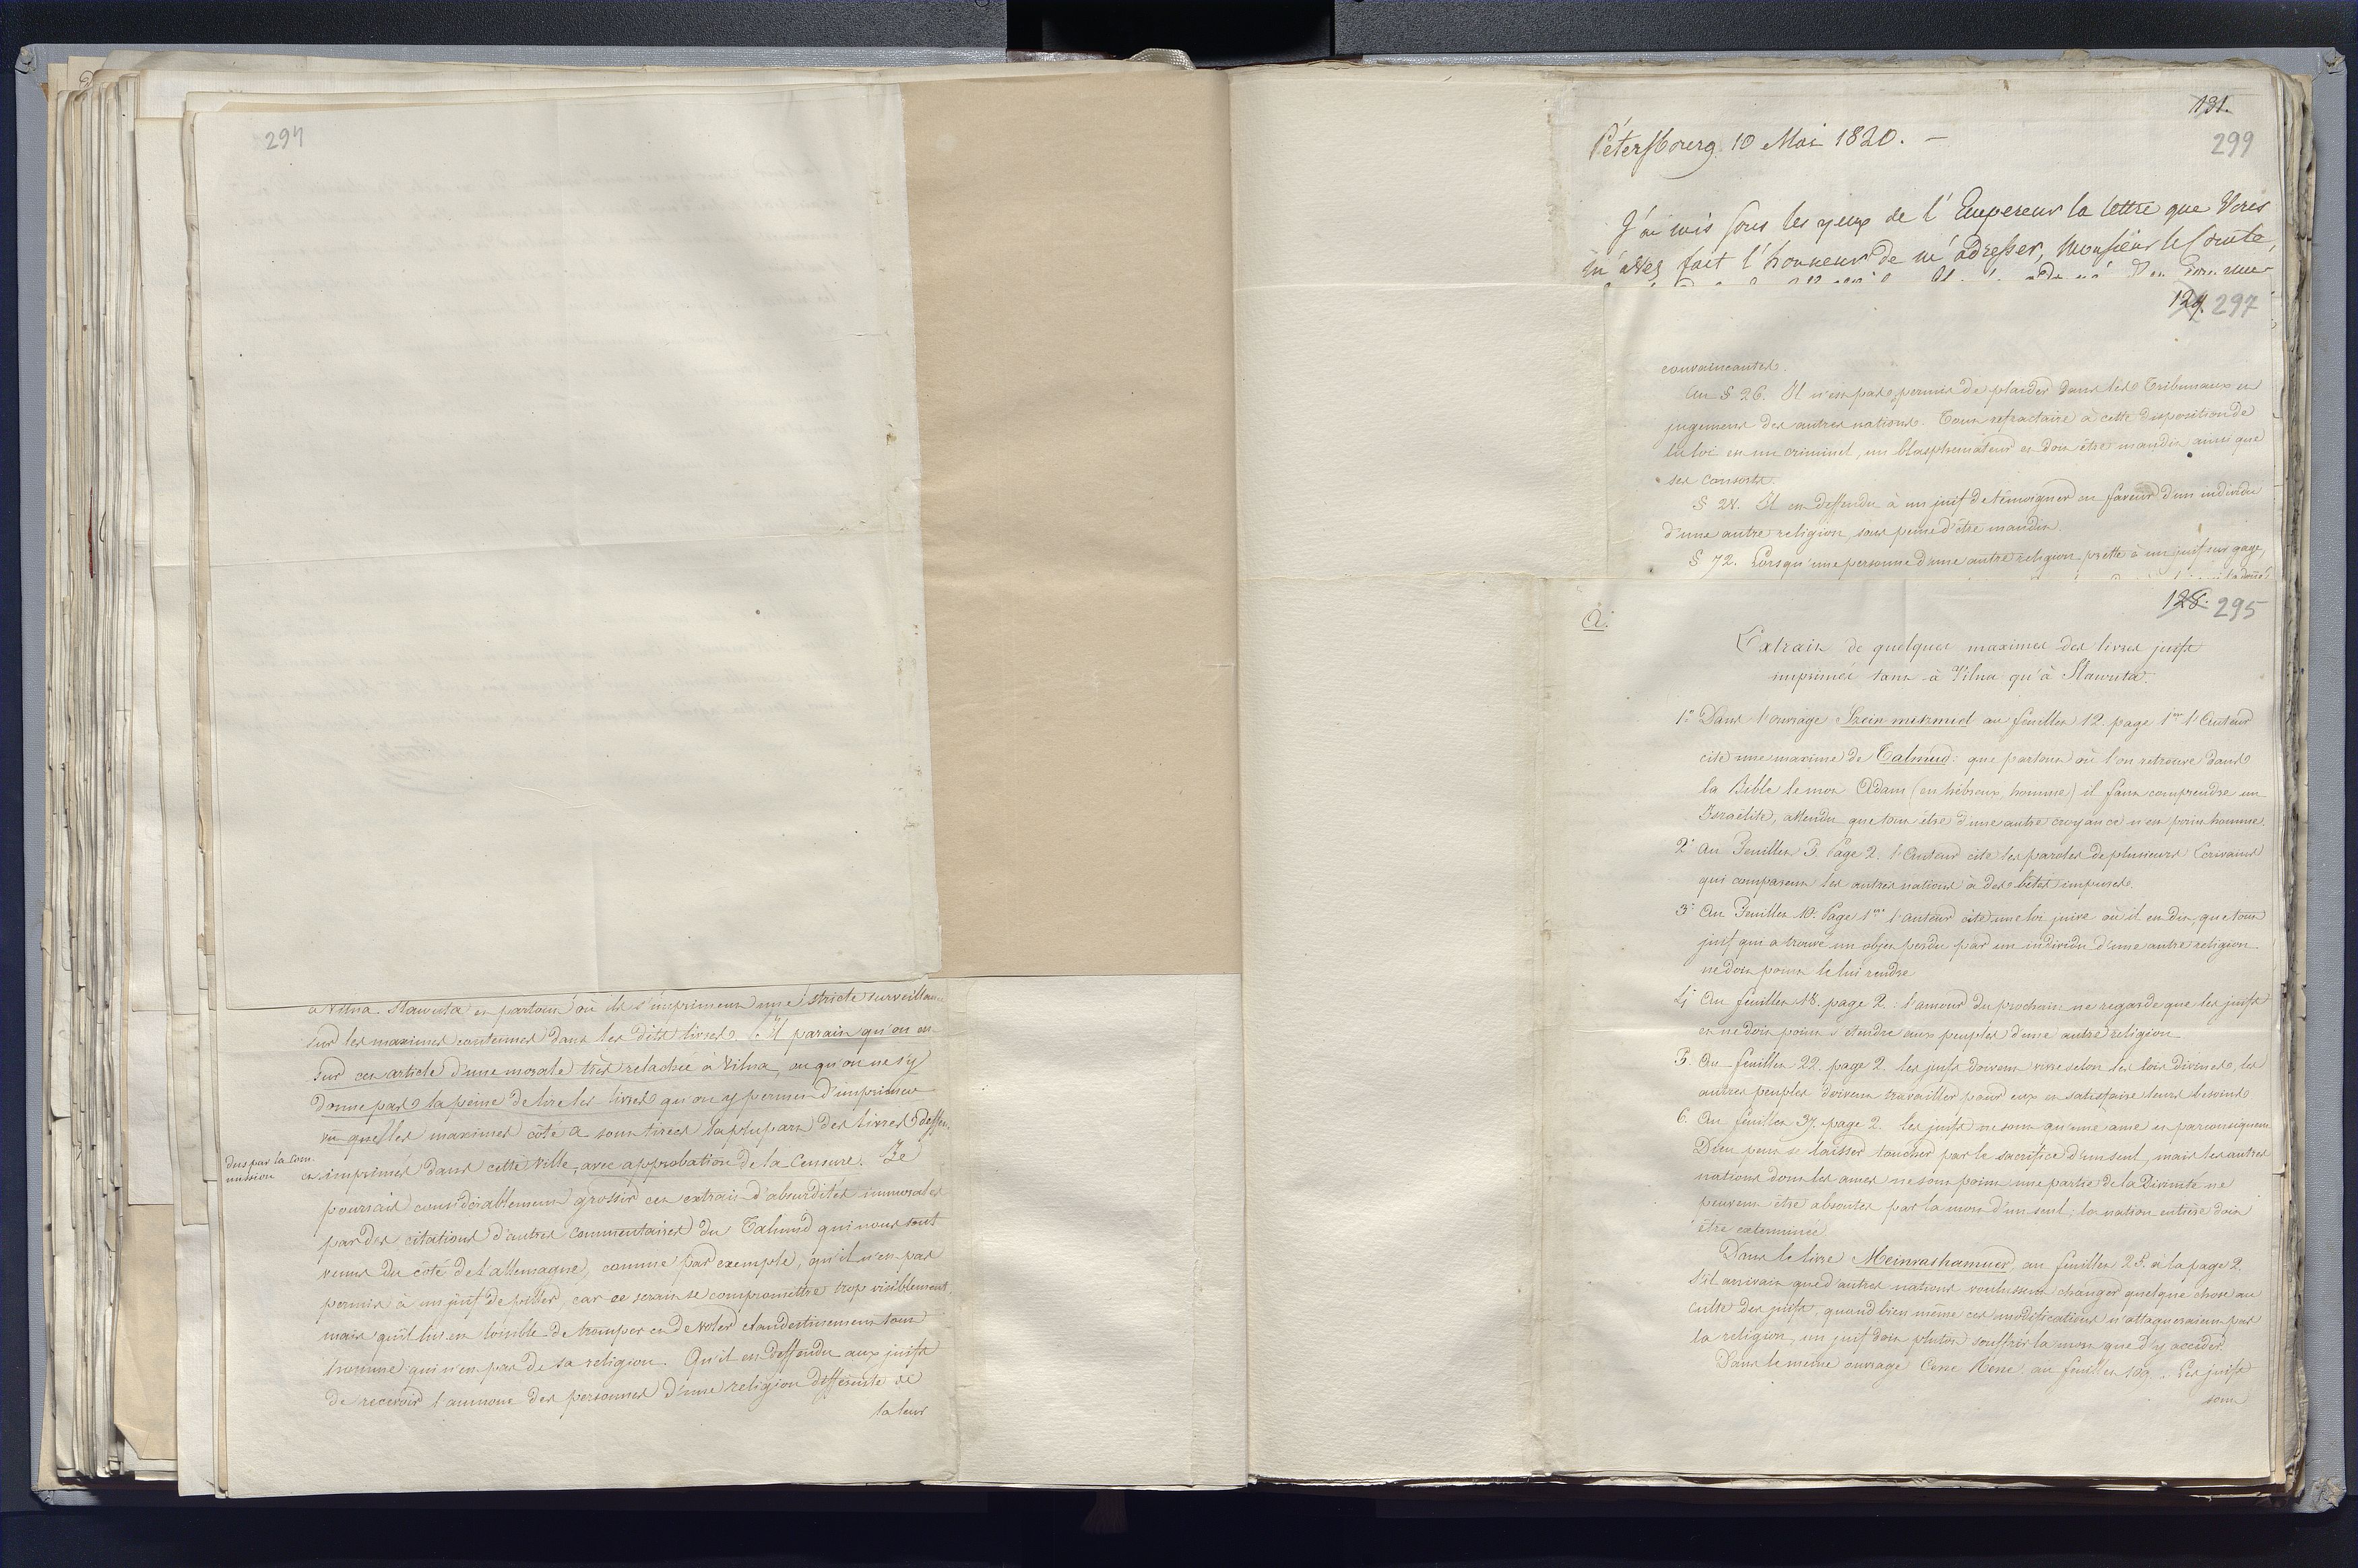 294
a Vilna. Slawuta et partout où ils s'impriment une stricte surveillance
sur les maximes contenues dans les dits livres. Il parait qu'on est
sur cet article d'une morale très relachée à Vilna, ou qu'on ne s'y
donne pas la peine de lire les livres qu'on y permet d'imprimer
vû que les maximes côté a sont tirées la plupart des livres deffen-
dus par la Com-
mission
et imprimés dans cette ville, avec approbation de la Censure. Je
pourrais considérablement grossir cet extrait d'absurdités immorales
par des citations d'autres Commentaires du Talmud qui nous sont
venus du côté de l'allemagne, comme par exemple, qu'il n'est pas
permis à un juif de piller, car ce serait se compromettre trop visiblement,
mais qu'il lui est loisible de tromper et de voler clandestinement tout
homme qui n'est pas de sa religion. Qu'il est deffendu aux juifs
de recevoir l'aumone des personnes d'une religion differente de
la leur
131.
299
Pétersbourg 10 Mai 1820. –
J'ai mis sous les yeux de l'Empereur la lettre que Vous
m'avez fait l'honneur de m'adresser, Monsieur le Comte,
129. 297
convaincantes.
Au § 26. Il n'est pas permis de plaider dans les Tribunaux et
jugement des autres nations. Tout refractaire à cette disposition de
la loi est un criminel, un blasphemateur et doit être maudit ainsi que
ses consorts.
§ 28. Il est deffendu à un juif de témoigner en faveur d'un individu
d'une autre religion, sous peine d'être maudit.
§ 72. Lorsqu'une personne d'une autre religion prette à un juif sur gage,
128. 295
a.
Extrait de quelques maximes des livres juifs
imprimés tant à Vilna qu'à Slawuta.
1° Dans l'ouvrage Szein mizmiel au feuillet 12. page 1ère l'Auteur
cite une maxime de Talmud: que partout où l'on retrouve dans
la Bible le mot Adam (en hébreux, homme) il faut comprendre un
Israëlite, attendu que tout être d'une autre croyance n'est point homme.
2° au Feuillet 5. Page 2. l'Auteur cite les paroles de plusieurs Ecrivains
qui comparent les autres nations à des bêtes impures.
3° Au Feuillet 10. Page 1ère l'auteur cite une loi juive où il est dit, que tout
juif qui a trouvé un objet perdu par un individu d'une autre religion
ne doit point le lui rendre
4° Au feuillet 18. page 2. l'amour du prochain ne regarde que les juifs
et ne doit point s'etendre aux peuples d'une autre religion
5. Au feuillet 22. page 2. les juifs doivent vivre selon les lois divines, les
autres peuples doivent travailler pour eux et satisfaire leurs besoins
6. Au feuillet 37. page 2. les juifs ne sont qu'une ame et par consequent
Dieu peut se laisser toucher par le sacrifice d'un seul, mais les autres
nations dont les ames ne sont point une partie de la Divinité ne
peuvent être absoutes par la mort d'un seul: la nation entière doit
être exterminée
Dans le livre Meinvashamuer, au feuillet 25. à la page 2.
s'il arrivait que d'autres nations voulussent changer quelque chose au
culte des juifs, quand bien même ces modifications n'attaqueraient pas
la religion, un juif doit plutôt souffrir la mort que d'y acceder.
Dans le meme ouvrage Cene Rene au feuillet 109. Les juifs
sont